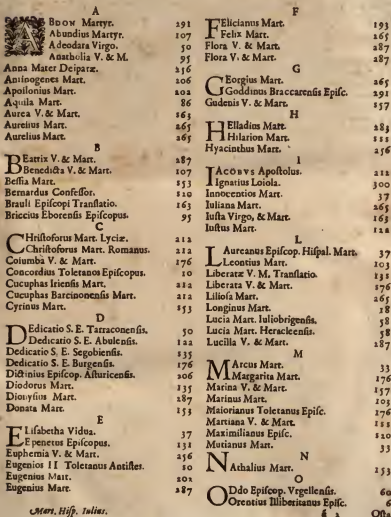 A
ABDON Martyr. 291
Abundius Martyr. 107
Adeodara Virgo. 50
Anatholia V. & M. 95
Anna Mater Deiparæ. 256
Antinogenes Mart. 206
Apollonius Mart. 102
Aquila Mart. 86
Aurea V. & Mart. 163
Aurelius Mart. 265
Aurelius Mart. 265
B
Beatrix V. & Mart. 287
Benedicta V. & Mart. 107
Bessia Mart. 153
Bernardus Confessor. 210
Brauli Episcopi Translatio. 163
Briccius Eborensis Episcopus. 95
C
CHristoforus Mart. Lyciæ. 212
Christoforus Mart. Romanus. 212
Columba V. & Mart. 176
Concordius Toletanus Episcopus. 10
Cucuphas Iriensis Mart. 212
Cucuphas Barcinonensis Mart. 212
Cyrinus Mart. 153
D
DEdicatio S. E. Tarraconensis. 50
Dedicatio S. E. Abulensis. 122
Dedicatio S. E. Segobiensis. 135
Dedicatio S. E. Burgensis. 176
Dictinius Episcopus Asturicensis. 206
Diodorus Mart. 135
Dionysius Mart. 287
Donata Mart. 153
E
ELisabetha Vidua. 37
Epenetus Episcopus. 131
Euphemia V. & Mart. 256
Eugenios II Toletanus Antistes. 10
Eugenius Mart. 202
Eugenius Mart. 287
Mart. Hisp. Iulius.
F
FElicianus Mart. 193
Felix Mart. 265
Flora V. & Mart. 265
Flora V. & Mart. 287
G
GEorgius Mart. 265
Goddinus Braccarensis Episc. 291
Gudenis V. & Mart. 157
H
HElladius Mart. 283
Hilarion Mart. 111
Hyacinthus Mart. 256
I
IACOBVS Apostolus. 212
Ignatius Loiola. 300
Innocentios Mart. 37
Iuliana Mart. 265
Iusta Virgo, & Mart. 163
Iustus Mart. 122
L
LAureanus Episcop. Hispal. Mart. 37
Leontius Mart. 103
Liberatæ V. M. Translatio. 131
Liberata V. & Mart. 176
Liliosa Mart. 265
Longinus Mart. 18
Lucia Mart. Iuliobrigensis. 58
Lucia Mart. Heracleensis. 58
Lucilla V. & Mart. 287
M
MArcus Mart. 33
Margarita Mart. 176
Marina V. & Mart. 157
Marinus Mart. 103
Maiorianus Toletanus Episc. 176
Martiana V. & Mart. 111
Maximilianus Episc. 120
Mutianus Mart. 33
N
NAthalius Mart. 153
O
ODdo Episcop. Vrgellensis. 60
Orentius Illiberitanus Episc.